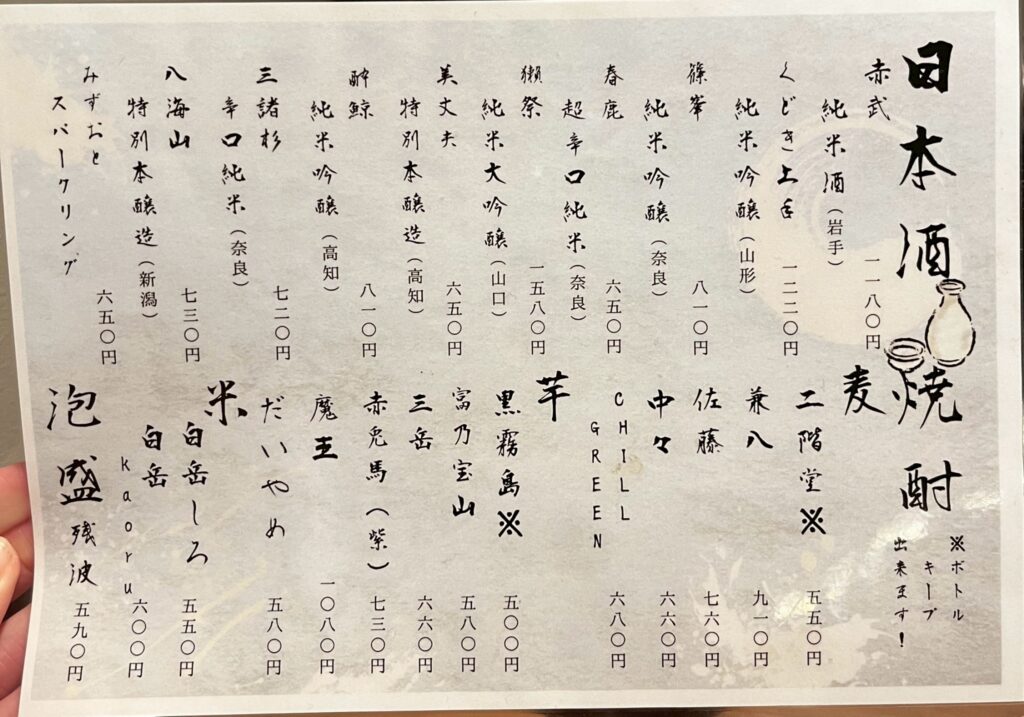 日本酒
赤武 一一八〇円
純米酒（岩手）
くどき上手 一二二〇円
純米吟醸（山形）
篠峯 八一〇円
純米吟醸（奈良）
春鹿 六五〇円
超辛口純米（奈良）
獺祭 一五八〇円
純米大吟醸（山口）
美丈夫 六五〇円
特別本醸造（高知）
酔鯨 八一〇円
純米吟醸（高知）
三諸杉 七二〇円
辛口純米（奈良）
八海山 七三〇円
特別本醸造（新潟）
みずおと 六五〇円
スパークリング
焼酎
※ボトル
キープ
出来ます！
麦
二階堂※ 五五〇円
兼八 九一〇円
佐藤 七六〇円
中々 六六〇円
CHILL 六八〇円
GREEN
芋
黒霧島※ 五〇〇円
富乃宝山 五八〇円
三岳 六六〇円
赤兎馬（紫） 七三〇円
魔王 一〇八〇円
だいやめ 五八〇円
米
白岳しろ 五五〇円
白岳 六〇〇円
kaoru
泡盛
残波 五九〇円